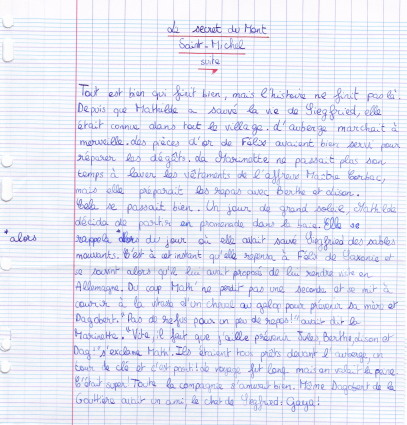 Le secret du Mont
Saint-Michel
suite
Tout est bien qui finit bien, mais l'histoire ne finit pas là.
Depuis que Mathilde a sauvé la vie de Siegfried, elle
était connue dans tout le village. L'auberge marchait à
merveille. Les pièces d'or de Félix avaient bien servi pour
réparer les dégâts. La Marinette ne passait plus son
temps à laver les vêtements de l'affreux Maître Corbac,
mais elle préparait les repas avec Berthe et Lison.
Cela se passait bien. Un jour de grand soleil, Mathilde
décida de partir en promenade dans la baie. Elle se
*alors
rappela *alors du jour où elle avait sauvé Siegfried des sables
mouvants. C'est à cet instant qu'elle repensa à Félix de Saxonie et
se souvint alors qu'il lui avait proposé de lui rendre visite en
Allemagne. Du coup Math' ne perdit pas une seconde et se mit à
courir à la vitesse d'un cheval au galop pour prévenir sa mère et
Dagobert. "Pas de refus pour un peu de repos!" avait dit la
Marinette. "Vite, il faut que j'aille prévenir Jules, Berthe, Lison et
Dag!" s'exclama Math'. Ils étaient tous prêts devant l'auberge, un
tour de clé et c'est parti! Le voyage fut long mais en valait la peine.
C'était super! Toute la compagnie s'amusait bien. Même Dagobert de la
Gouttière avait un ami, le chat de Siegfried: Gaya!